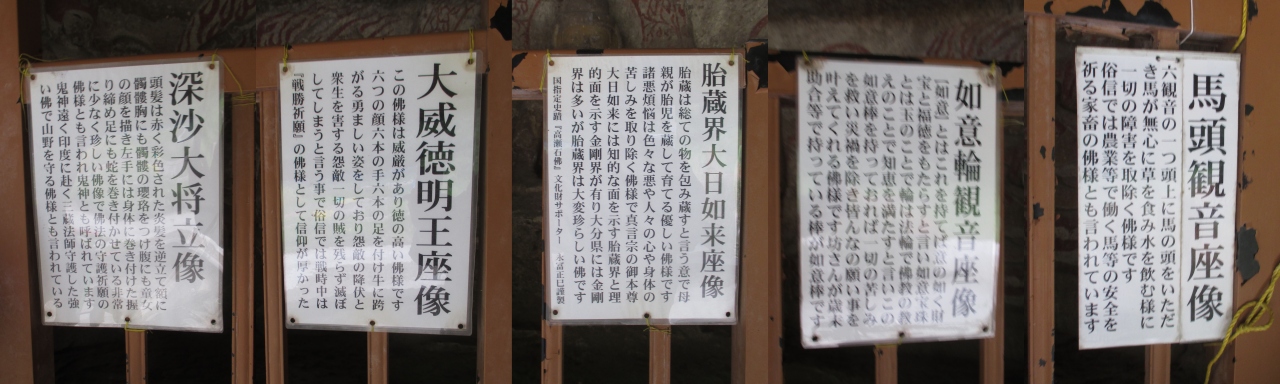 深沙大将立像
頭髪は赤く彩色された炎髪を逆立て額に
髑髏胸にも髑髏の瓔珞をつけ腹にも童女
の顔を描き左手には身体に巻き付けた握
り締め足にも蛇を巻き付かせている非常
に少なく珍しい佛像で佛法の守護祈願の
佛様とも言われ鬼神とも呼ばれています
鬼神遠く印度に赴く三蔵法師守護した強
い佛で山野を守る佛様とも言われている
大威徳明王座像
この佛様は威厳があり徳の高い佛様です
六つの顔六本の手六本の足を付け牛に跨
がる勇ましい姿をしており怨敵の降伏と
衆生を害する怨敵一切の賊を残らず滅ぼ
してしまうと言う事で俗信では戦時中は
『戦勝祈願』の佛様として信仰が厚かった
胎蔵界大日如来座像
胎蔵は総ての物を包み蔵すと言う意で母
親が胎児を蔵して育てる優しい佛様です
諸悪煩悩は色々な悪や人々の心や身体の
苦しみを取り除く佛様で真言宗の御本尊
大日如来には知的な面を示す胎蔵界と理
的面を示す金剛界が有り大分県には金剛
界は多いが胎蔵界は大変珍らしい佛です
国指定史蹟『高瀬石佛』文化財サポーター 永冨正巳謹製
如意輪観音座像
「如意」とはこれを持てば意の如く財
宝と福徳をもたらすと言い如意宝珠
とは玉のことで輪は法輪で佛教の教
えのことで知恵を満たすと言いこの
如意棒を持っておれば一切の苦しみ
を救い災禍を除き皆んなの願い事を
叶えてくれる佛様です坊さんが歳末
助合等で持っている棒が如意棒です
馬頭観音座像
六観音の一つ頭上に馬の頭をいただ
き馬が無心に草を食み水を飲む様に
一切の障害を取除く佛様です
俗信では農業等で働く馬等の安全を
祈る家畜の佛様とも言われています